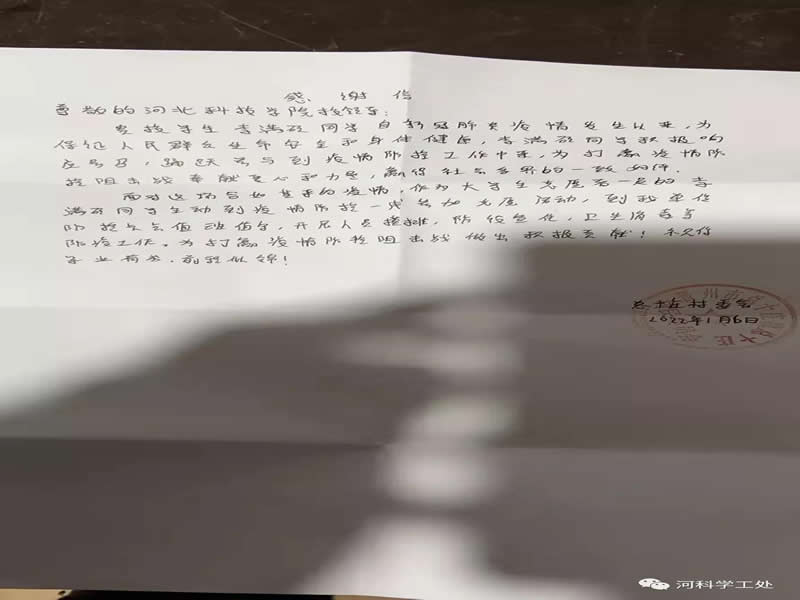 感谢信
尊敬的河北科技学院校领导:
贵校学生李满硕同学自新冠肺炎疫情发生以来,为
保证人民群众生命安全和身体健康,李满硕同学积极响
应号召,踊跃参与到疫情防控工作中来,为打赢疫情防
控阻击战奉献爱心和力量,赢得社会各界的一致好评。
面对这场突如其来的疫情,作为大学生志愿者一员的李
满硕同学主动到疫情防控一线参加志愿活动,到我单位
防控点值班值守,开展人员摸排,防控宣传,卫生消毒等
防疫工作。为打赢疫情防控阻击战做出积极贡献!祝
学业有成.前程似锦!
村委会
2022年1月6日
河科学工处